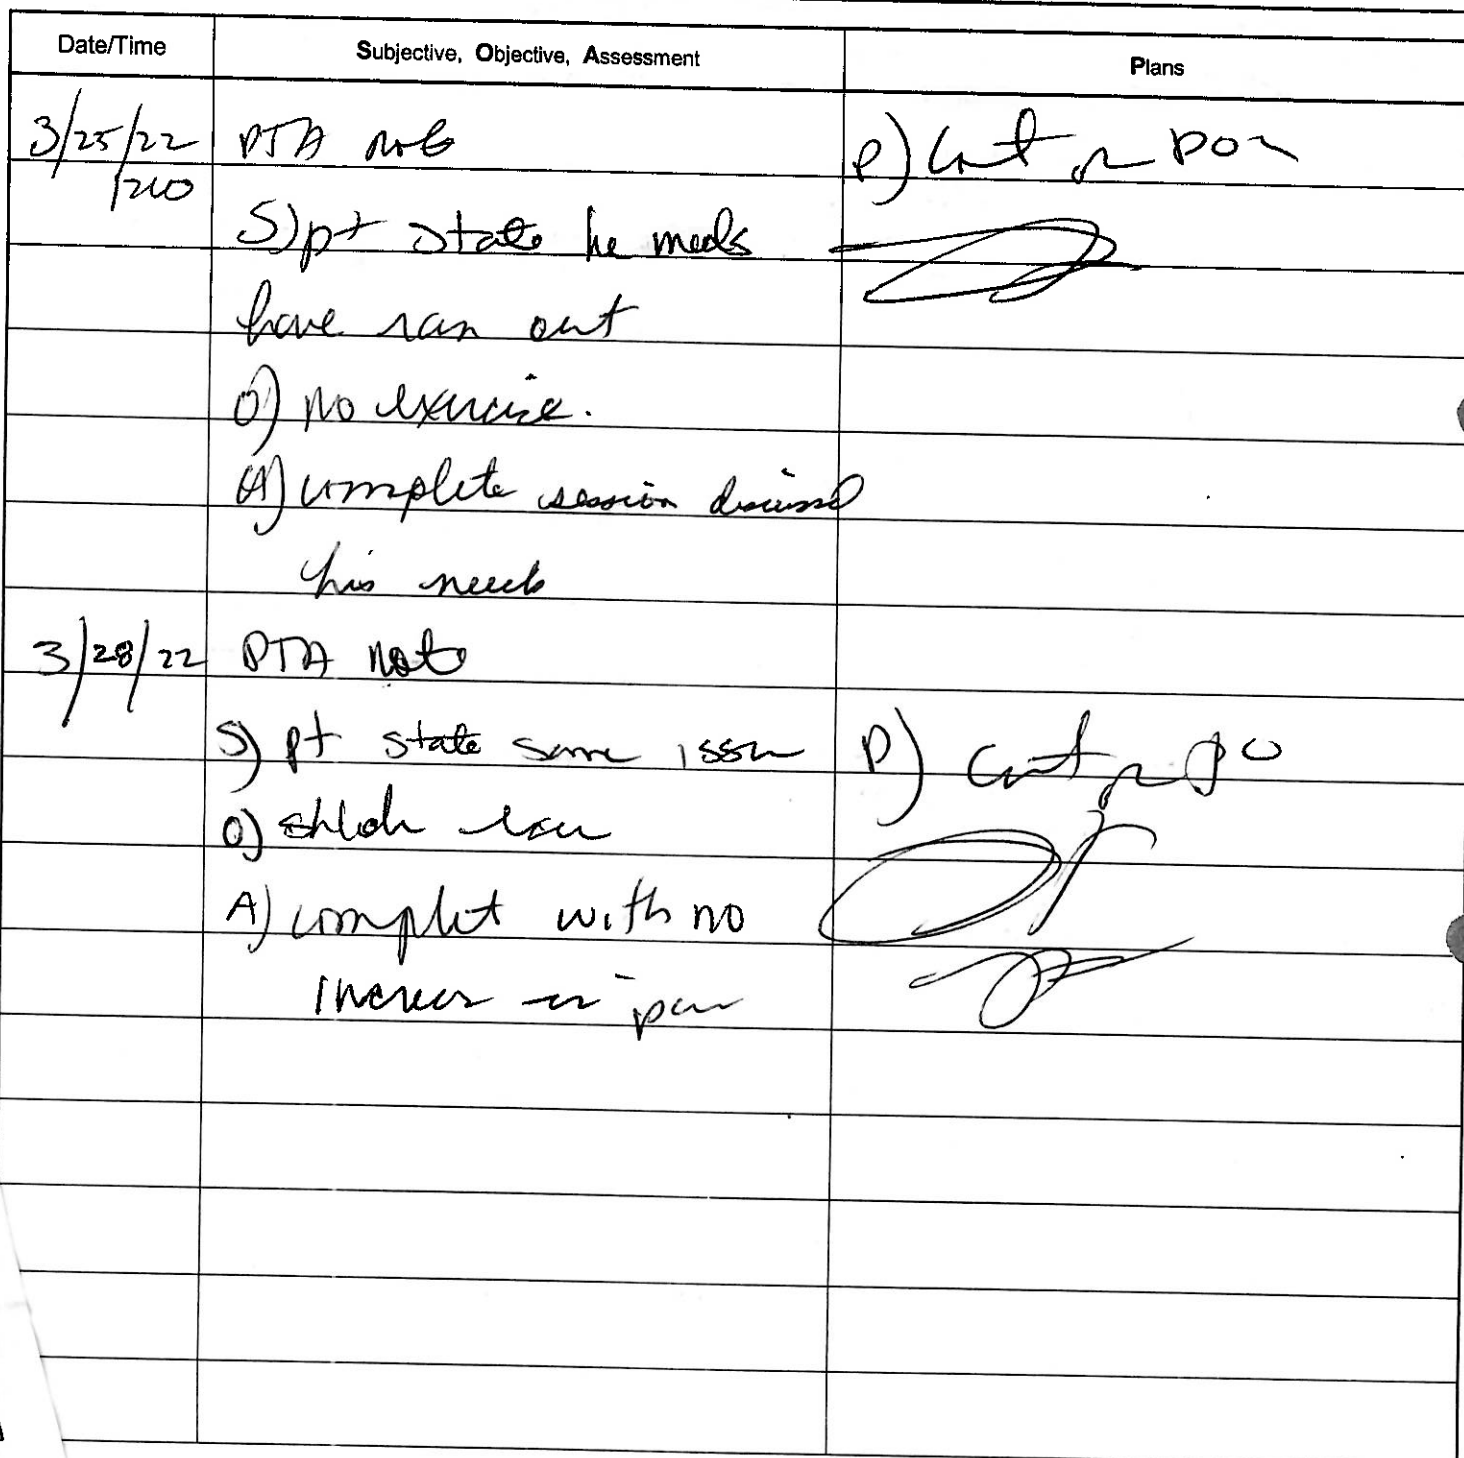 Date/Time Subjective, Objective, Assessment Plans
3/25/22 PTA note P) Cont
S) pt state he meds
have ran out
O) no exercise.
A) complete session discussed
his needs
3/28/22 PTA note
S) pt state same issue P) Cont
O)
A) complet with no
increase in pain